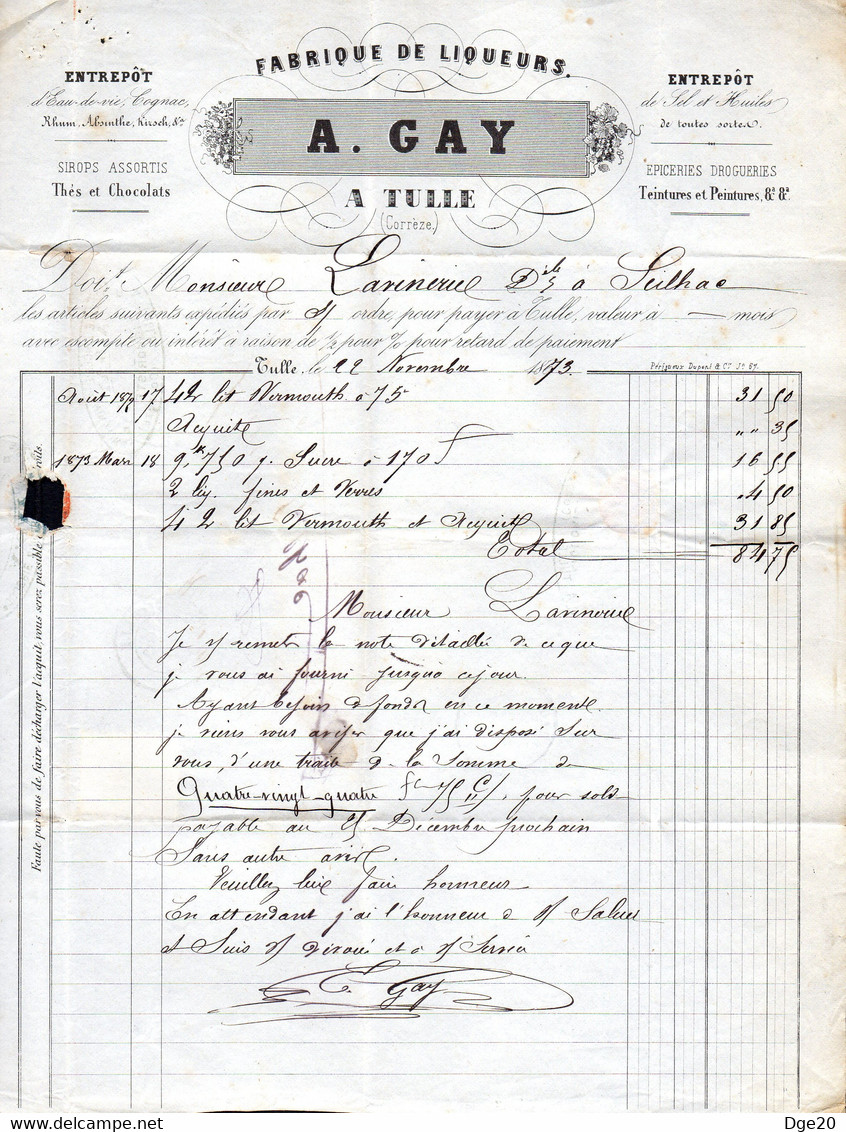 FABRIQUE DE LIQUEURS.
ENTREPÔT
d'Eau-de-vie, Cognac,
Rhum, Absinthe, Kirsch, &a
SIROPS ASSORTIS
Thés et Chocolats
A. GAY
A TULLE
(Corrèze)
ENTREPÔT
de Sel et Huiles
de toutes sortes.
EPICERIES DROGUERIES
Teintures et Peintures, &a &a.
Doit Monsieur Lavinerie à Seilhac
les articles suivants expédiés par s/ ordre, pour payer à Tulle, valeur à — mois
avec escompte ou intérêt à raison de 1/2 pour % pour retard de paiement
Tulle, le 22 Novembre 1873.
Périgueux Dupont & Cie
Août 1872 17 42 lit Vermouth à 75 31 50
Acquite " " 35
1873 Mars 18 9k 750 g. Sucre à 170 f 16 55
2 fines et Verres 4 50
42 lit Vermouth et Acquite 31 85
Total 84 75
Monsieur Lavinerie
Je v/ remets la note détaillée de ce que
je vous ai fourni jusqu'a ce jour.
Ayant besoin de fonds en ce moment
je viens vous aviser que j'ai disposé sur
vous, d'une traite de la somme de
Quatre-vingt-quatre fc 75 c/. pour solde
payable au 25 Décembre prochain
Sans autre avis.
Veuillez lui faire honneur
En attendant j'ai l'honneur de v/ saluer
et suis v/ dévoué et à v/ service
Gay
Faute par vous de faire décharger l'acquit, vous serez passible
Dge20